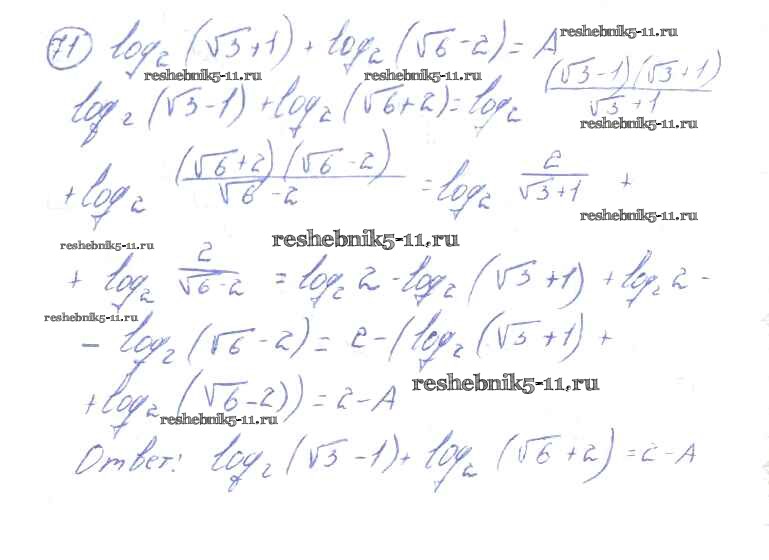 71 log₂(√3+1) + log₂(√6-2) = A
reshebnik5-11.ru
reshebnik5-11.ru reshebnik5-11.ru
log₂(√3-1) + log₂(√6+2) = log₂ (√3-1)(√3+1)/(√3+1)
reshebnik5-11.ru
+ log₂ (√6+2)(√6-2)/(√6-2) = log₂ 2/(√3+1) +
reshebnik5-11.ru
reshebnik5-11.ru
reshebnik5-11.ru
+ log₂ 2/(√6-2) = log₂2 - log₂(√3+1) + log₂2 -
reshebnik5-11.ru
- log₂(√6-2) = 2-(log₂(√3+1) +
+ log₂(√6-2)) = 2-A
reshebnik5-11.ru
reshebnik5-11.ru
Ответ: log₂(√3-1) + log₂(√6+2) = 2-A